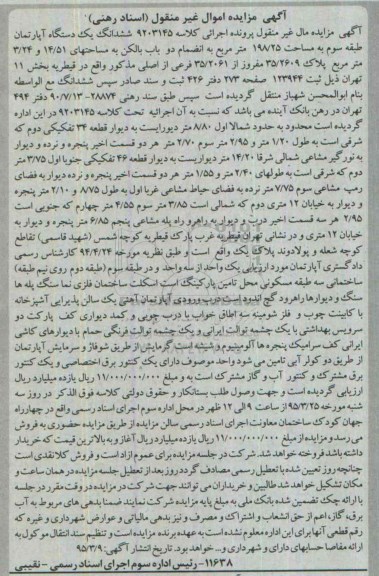 آگهی مزایده اموال غیر منقول (اسناد رهنی)
آگهی مزایده مال غیر منقول پرونده اجرائی کلاسه ۹۲۰۳۱۴۵ ششدانگ یک دستگاه آپارتمان
طبقه سوم به مساحت ۱۹۸/۲۵ متر مربع به انضمام دو باب بالکن به مساحتهای ۱۴/۵۱ و ۳/۲۴
متر مربع پلاک ۳۵/۲۶۰۹ مفروز از ۳۵/۲۰۶۱ فرعی از اصلی مذکور واقع در قیطریه بخش ۱۱
تهران ذیل ثبت ۱۲۳۹۴۴ صفحه ۲۷۳ دفتر ۴۲۶ ثبت و سند صادر سپس ششدانگ مع الواسطه
بنام ابوالمحسن شهباز منتقل گردیده است سپس طبق سند رهنی ۲۸۸۷۴- ۹۰/۷/۱۳ دفتر ۴۹۴
تهران در رهن بانک آینده می باشد که نسبت به آن اجرائیه تحت کلاسه ۹۲۰۳۱۴۵ در این اداره
گردیده است محدود به حدود شمالا اول ۸/۸۰ متر دیواریست به دیوار قطعه ۳۴ تفکیکی دوم که
شرقی است به طول ۱/۲۰ متر و ۲/۹۵ متر سوم ۲/۷۰ متر هر دو قسمت اخیر پنجره و نرده و دیوار
به نورگیر مشاعی شمالی شرقا ۱۴/۲۰ متر دیواریست به دیوار قطعه ۴۶ تفکیکی جنوبا اول ۳/۷۵ متر
دوم که شرقی است به طولهای ۲/۴۰ متر و ۱/۵۵ متر هر دو قسمت اخیر پنجره و نرده دیوار به فضای
رمپ مشاعی سوم ۷/۷۵ متر نرده به فضای حیاط مشاعی غربا اول به طول ۸/۷۵ و ۲/۱۰ متر پنجره
و دیوار به خیابان ۱۲ متری دوم که شمالی است ۳/۸۵ متر سوم ۴/۵۵ متر چهارم که جنوبی است
۲/۹۵ هر سه قسمت اخیر درب و دیوار به راهرو راه پله مشاعی پنجم ۶/۸۵ متر پنجره و دیوار به
خیابان ۱۲ متری و در نشانی تهران قیطریه غرب پارک قیطریه کوچه شمس (شهید قاسمی) تقاطع
کوچه شعله و پولادوند پلاک یک واقع است و طبق نظریه مورخه ۹۴/۴/۲۴ کارشناس رسمی
دادگستری آپارتمان مورد ارزیابی یک واحد از سه واحد و در طبقه سوم (طبقه دوم روی نیم طبقه)
ساختمانی سه طبقه مسکونی محل تامین پارکینگ است اسکلت ساختمان فلزی نما سنگ پله ها
سنگ و دیوارها راهرو گچ اندود است درب ورودی آپارتمان آهنی یک سالن پذیرایی آشپزخانه
با کابینت چوب و فلز شومینه سه اطاق خواب با درب چوبی و کمد دیواری کف پارکت دو
سرویس بهداشتی با یک چشمه توالت ایرانی و یک چشمه توالت فرنگی حمام با دیوارهای کاشی
ایرانی کف سرامیک پنجره ها آلومینیوم و شیشه است گرمایش از طریق شوفاژ و سرمایش آپارتمان
از طریق دو کولر آبی تامین می شود واحد موصوف دارای یک کنتور برق اختصاصی و یک کنتور
برق مشترک و کنتور آب و گاز مشترک است به و مبلغ ۱۱/۰۰۰/۰۰۰/۰۰۰ ریال یازده میلیارد ریال
ارزیابی گردیده است و جهت وصول طلب بستانکار و حقوق دولتی کلاسه فوق الذکر در روز سه
شنبه مورخه ۹۵/۳/۲۵ از ساعت ۹ الی ۱۲ ظهر در محل اداره سوم اجرای اسناد رسمی واقع در چهارراه
جهان کودک ساختمان معاونت اجرای اسناد رسمی سالن مزایده از طریق مزایده حضوری به فروش
می رسد و مزایده از مبلغ ۱۱/۰۰۰/۰۰۰/۰۰۰ ریال یازده میلیارد ریال آغاز و به بالاترین قیمت که خریدار
داشته باشد فروخته خواهد شد. شرکت در جلسه مزایده برای عموم آزاد است و فروش کلا نقدی است
چنانچه روز تعیین شده با تعطیل رسمی مصادف گردد روز بعد از تعطیل جلسه مزایده در همان ساعت و
مکان تشکیل خواهد شد طالبین و خریداران می توانند جهت شرکت در مزایده در وقت مقرر در جلسه
با ارائه چک تضمین شده بانک ملی به مبلغ پایه مزایده شرکت نمایند ضمنا بدهی های مربوط به آب
برق، گاز، اعم از حق انشعاب و اشتراک و مصرف و نیز بدهی مالیاتی و عوارض شهرداری و غیره که
رقم قطعی آنها برای این اداره معلوم نشده است به عهده برنده مزایده است و تنظیم سند انتقال موکول به
ارائه مفاصا حسابهای دارای و شهرداری و... خواهد بود. تاریخ انتشار آگهی: ۹۵/۳/۹
۱۱۶۳۸- رئیس اداره سوم اجرای اسناد رسمی - نقیبی